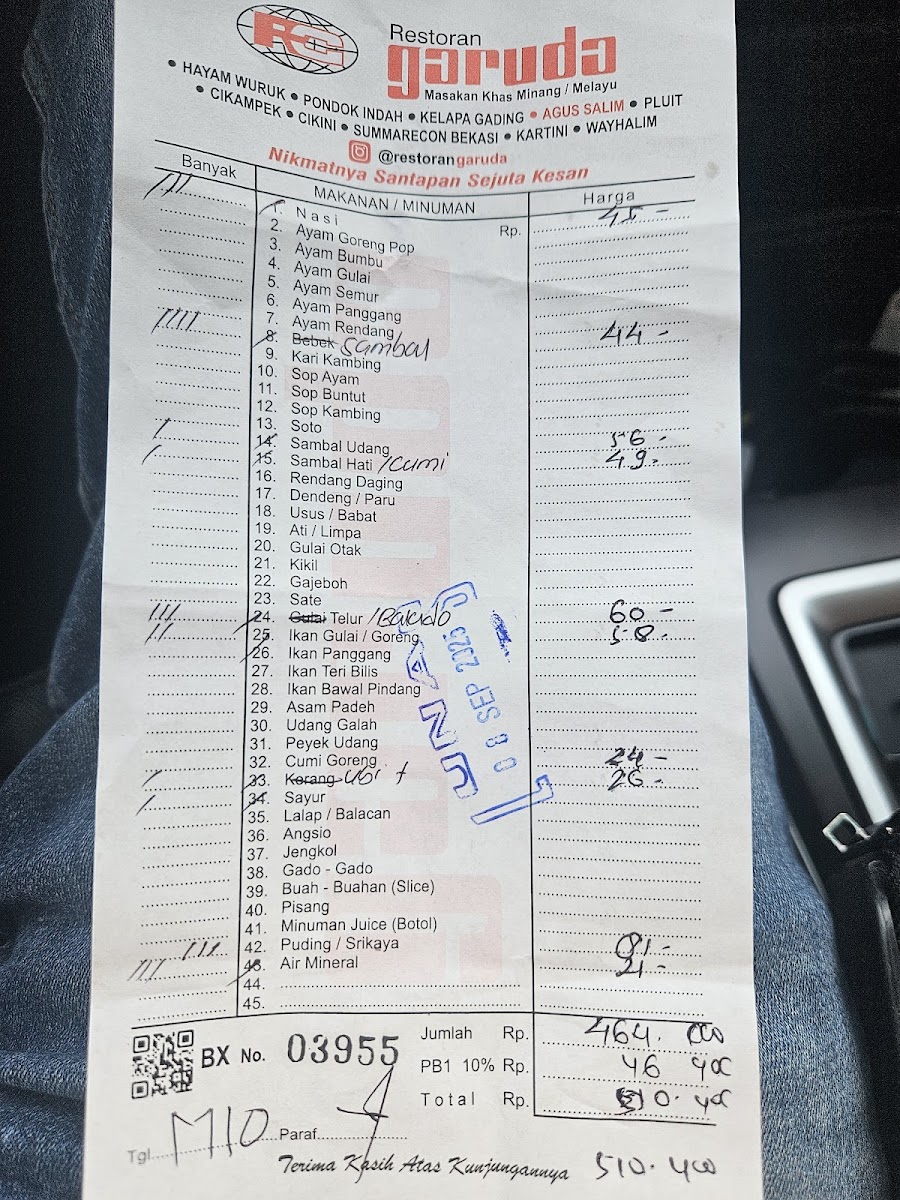 RG
Restoran
garuda
Masakan Khas Minang / Melayu
• HAYAM WURUK • PONDOK INDAH • KELAPA GADING • AGUS SALIM • PLUIT
• CIKAMPEK • CIKINI • SUMMARECON BEKASI • KARTINI • WAYHALIM
@restorangaruda
Nikmatnya Santapan Sejuta Kesan
Banyak MAKANAN / MINUMAN Harga
1. Nasi Rp. 45 -
2. Ayam Goreng Pop
3. Ayam Bumbu
4. Ayam Gulai
5. Ayam Semur
6. Ayam Panggang
7. Ayam Rendang
8. Bebek Sambal 44 -
9. Kari Kambing
10. Sop Ayam
11. Sop Buntut
12. Sop Kambing
13. Soto
14. Sambal Udang 56 -
15. Sambal Hati /Cumi 49 -
16. Rendang Daging
17. Dendeng / Paru
18. Usus / Babat
19. Ati / Limpa
20. Gulai Otak
21. Kikil
22. Gajeboh
23. Sate
24. Gulai Telur /Balado 60 -
25. Ikan Gulai / Goreng 58 -
26. Ikan Panggang
27. Ikan Teri Bilis
28. Ikan Bawal Pindang
29. Asam Padeh
30. Udang Galah
31. Peyek Udang
32. Cumi Goreng 24 -
33. Kerang Ubi + 26 -
34. Sayur
35. Lalap / Balacan
36. Angsio
37. Jengkol
38. Gado - Gado
39. Buah - Buahan (Slice)
40. Pisang
41. Minuman Juice (Botol)
42. Puding / Srikaya 81 -
43. Air Mineral 21 -
44.
45.
LUNAS
08 SEP 2025
BX No. 03955
Jumlah Rp. 464. 000
PB1 10% Rp. 46 400
Total Rp. 510. 400
Tgl. M10 Paraf
Terima Kasih Atas Kunjungannya
510. 400